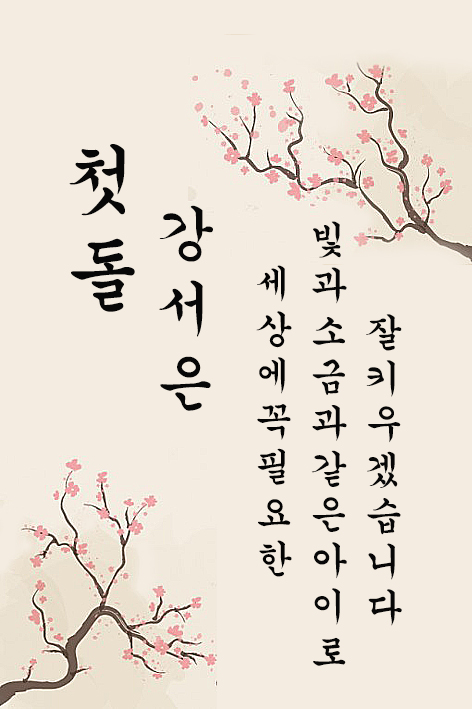 첫돌
강서은
세상에꼭필요한
빛과소금과같은아이로
잘키우겠습니다